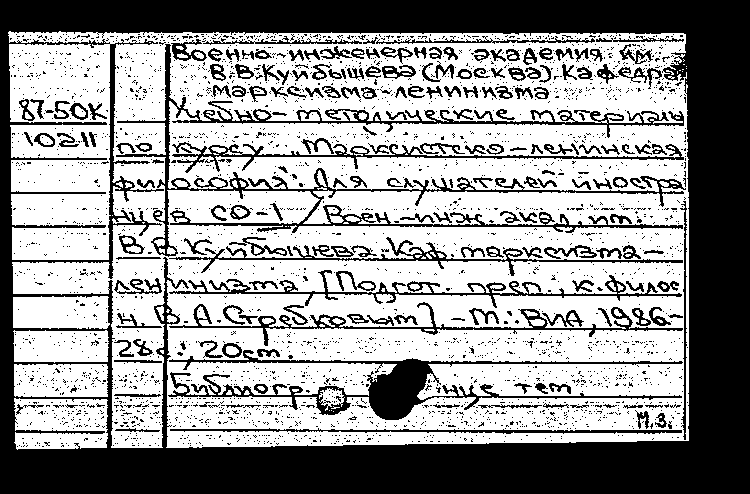 Военно-инженерная академия им.
В.В.Куйбышева (Москва). Кафедра
марксизма-ленинизма.
87-50К Учебно-методические материалы
10211 по курсу „Марксистско-ленинская
философия": Для слушателей иностра
нцев СО-1 / Воен.-инж. акад. им.
В.В.Куйбышева, Каф. марксизма-
ленинизма; [Подгот. преп., к.филос.
н. В.А.Стребковым]. -М.: ВИА, 1986-
28с.; 20см.
Библиогр. нце тем.
М.З.